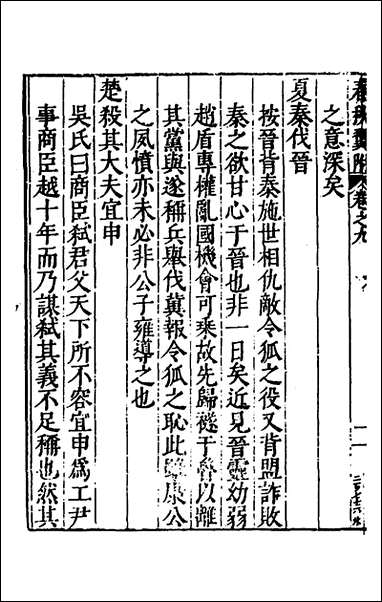 之意深矣
夏秦伐晉
按晉背秦施世相仇敵令狐之役又背盟詐敗
秦之欲甘心于晉也非一日矣近見晉靈幼弱
趙盾專權亂國機會可乗故先歸襚于魯以離
其黨與遂稱兵舉伐冀報令狐之恥此康公
之夙憤亦未必非公子雍導之也
楚殺其大夫宜申
吳氏曰商臣弒君父天下所不容宜申爲工尹
事商臣越十年而乃謀弒其義不足稱也然其